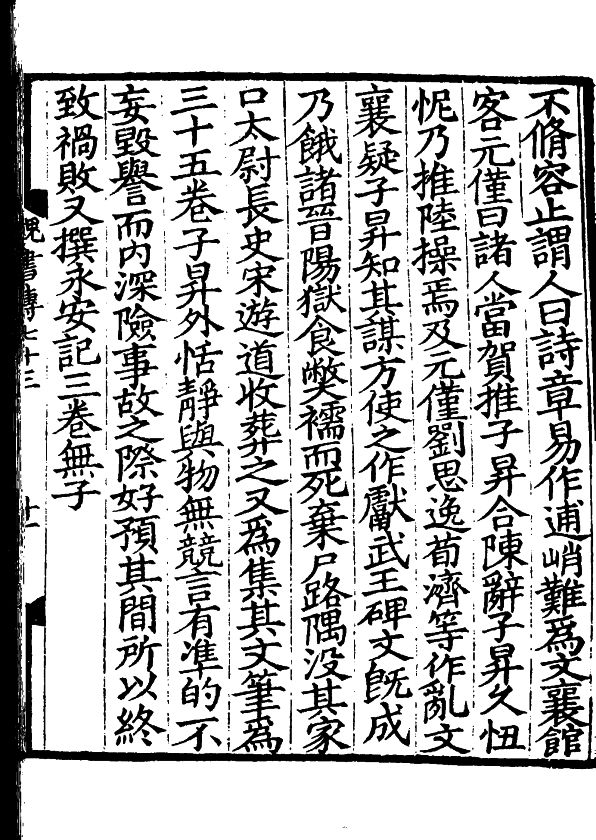 不脩容止謂人曰詩章易作逋峭難爲文襄館
客元僅曰諸人當賀推子昇合陳辭子昇久忸
怩乃推陸操焉及元僅劉思逸荀濟等作亂文
襄疑子昇知其謀方使之作獻武王碑文旣成
乃餓諸晉陽獄食弊襦而死棄尸路隅没其家
口太尉長史宋遊道收葬之又爲集其文筆爲
三十五卷子昇外恬靜與物無競言有準的不
妄毀譽而内深險事故之際好預其間所以終
致禍敗又撰永安記三卷無子
魏書傳七十三
十一